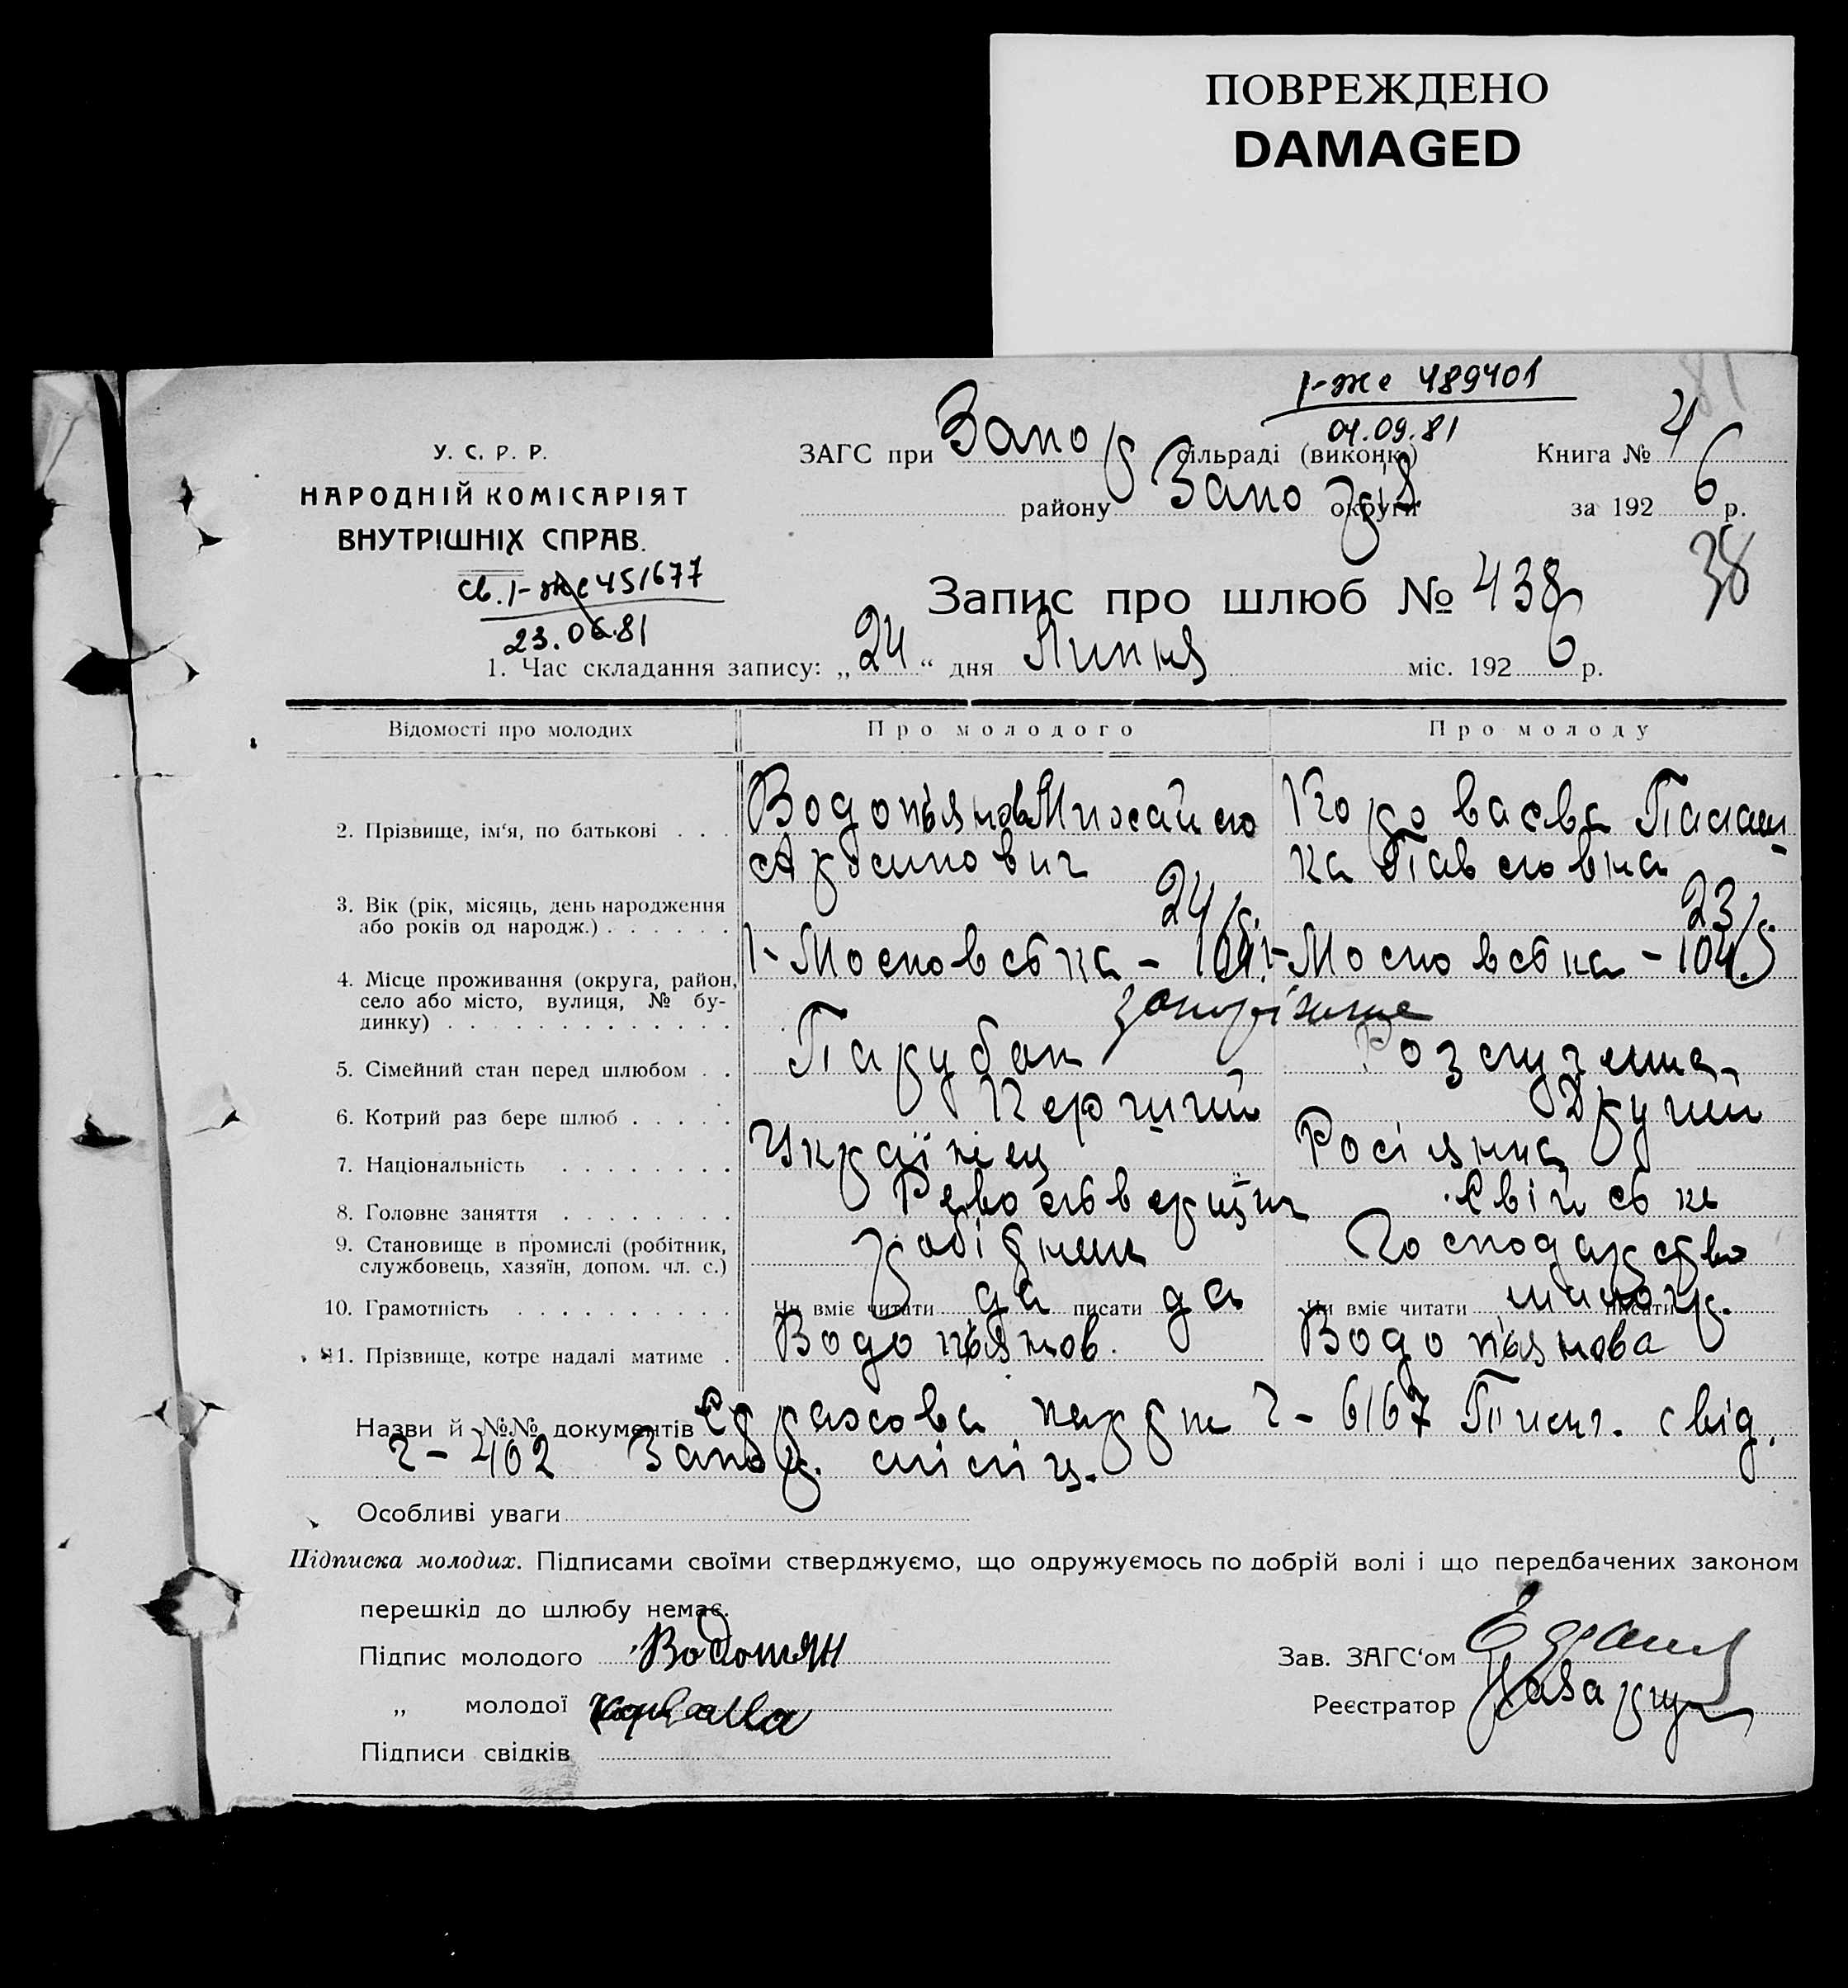 ПОВРЕЖДЕНО
DAMAGED
1-же 489401
01.09.81
У. С. Р. Р.
НАРОДНІЙ КОМІСАРІЯТ
ВНУТРІШНІХ СПРАВ.
св. 1-же 451677
23.06.81
ЗАГС при Запор сільраді (виконк.) Книга № 4
району Запоріз округи за 1926 р.
38
Запис про шлюб № 438
1. Час складання запису: „24“ дня Липня міс. 1926 р.
Відомості про молодих Про молодого Про молоду
2. Прізвище, ім'я, по батькові . . . Водоп'янов Михайло Параш
ка Павловна
3. Вік (рік, місяць, день народження
або років од народж.) . . . . . . 24 р. 23 р.
4. Місце проживання (округа, район,
село або місто, вулиця, № бу-
динку) . . . . . . . . . . . . . Запоріжже
5. Сімейний стан перед шлюбом . . Парубок
6. Котрий раз бере шлюб . . . . . Перший Другий
7. Національність . . . . . . . . Українец Росіянка
8. Головне заняття . . . . . . . . Револьверщик Свійське
9. Становище в промислі (робітник,
службовець, хазяїн, допом. чл. с.) робітник господарство
10. Грамотність . . . . . . . . . . Чи вміє читати да писати да Чи вміє читати малогр. писати
11. Прізвище, котре надалі матиме . Водоп'янов. Водоп'янова
Назви й №№ документів 6167 свід.
ч- 402 Запор. міліц.
Особливі уваги
Підписка молодих. Підписами своїми стверджуємо, що одружуємось по добрій волі і що передбачених законом
перешкід до шлюбу немає.
Підпис молодого Водопян Зав. ЗАГС'ом
„ молодої Реєстратор
Підписи свідків